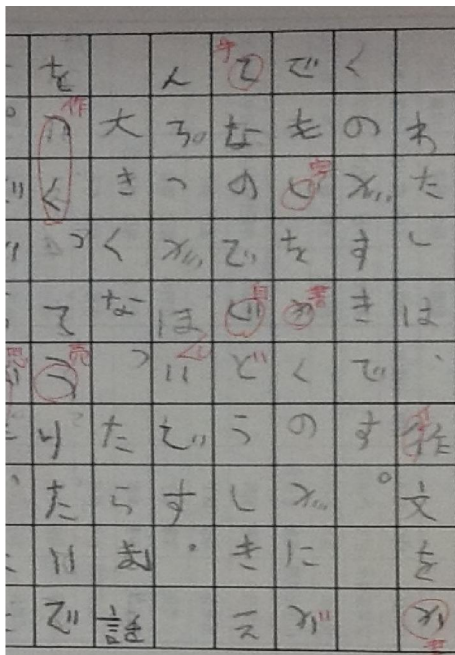 わたしは、作文をか
くのがすきです。
でもじをかくのがにが
てなのでじどうしきえ
んぴつがほしいです。
大きくなったらお話
をつくってうりたいで